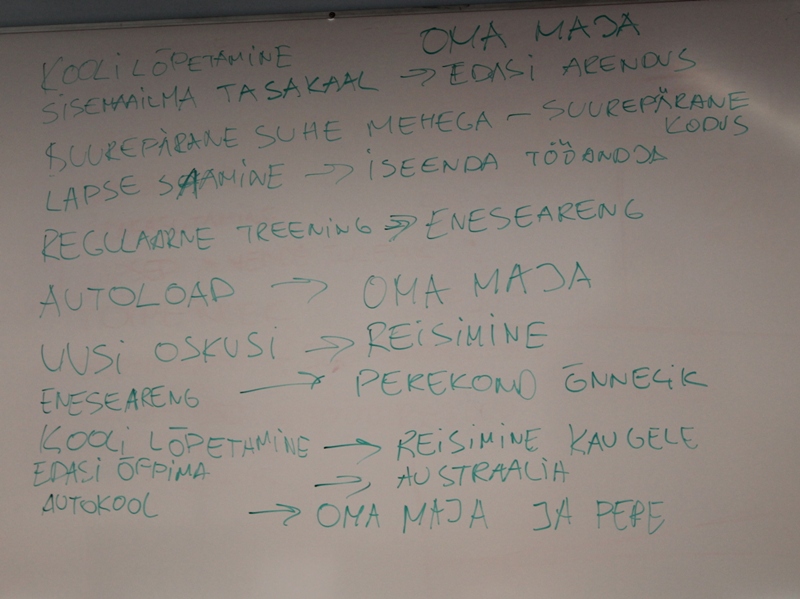 OMA MAJA
KOOLI LÕPETAMINE
SISEMAAILMA TASAKAAL → EDASI ARENDUS
SUUREPÄRANE SUHE MEHEGA – SUUREPÄRANE
KODUS
LAPSE SAAMINE → ISEENDA TÖÖANDJA
REGULAARNE TREENING → ENESEARENG
AUTOLOAD → OMA MAJA
UUSI OSKUSI → REISIMINE
ENESEARENG → PEREKOND ÕNNELIK
KOOLI LÕPETAMINE → REISIMINE KAUGELE
EDASI ÕPPIMA → AUSTRAALIA
AUTOKOOL → OMA MAJA JA PERE